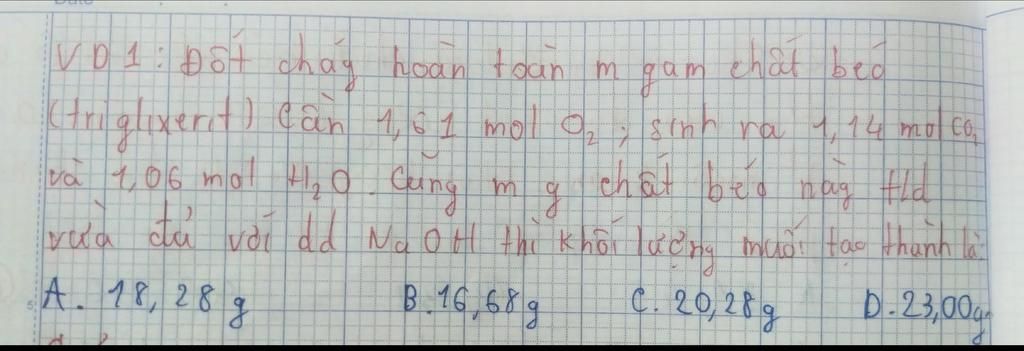 VD1: Đốt cháy hoàn toàn m gam chất béo
(triglixerit) cần 1,61 mol O₂, sinh ra 1,14 mol CO₂
và 1,06 mol H₂O. Cũng m g chất béo này tác
vừa đủ với dd NaOH thì khối lượng muối tạo thành là:
A. 18,28g B. 16,68g C. 20,28g D. 23,00g